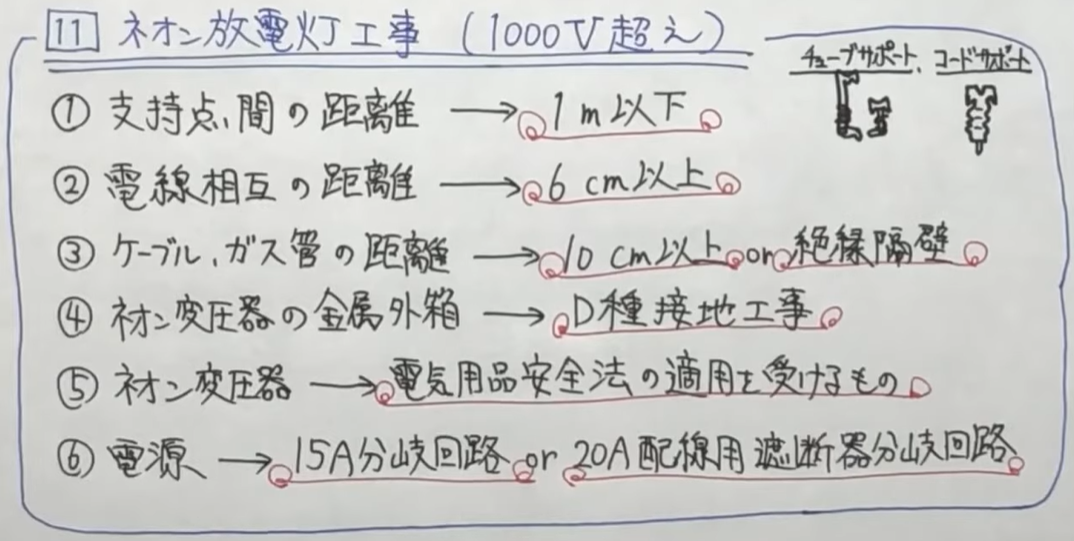 11 ネオン放電灯工事 (1000V超え)
チューブサポート、コードサポート
① 支持点間の距離 → 1m以下
② 電線相互の距離 → 6cm以上
③ ケーブル、ガス管の距離 → 10cm以上 or 絶縁隔壁
④ ネオン変圧器の金属外箱 → D種接地工事
⑤ ネオン変圧器 → 電気用品安全法の適用を受けるもの
⑥ 電源 → 15A分岐回路 or 20A配線用遮断器分岐回路